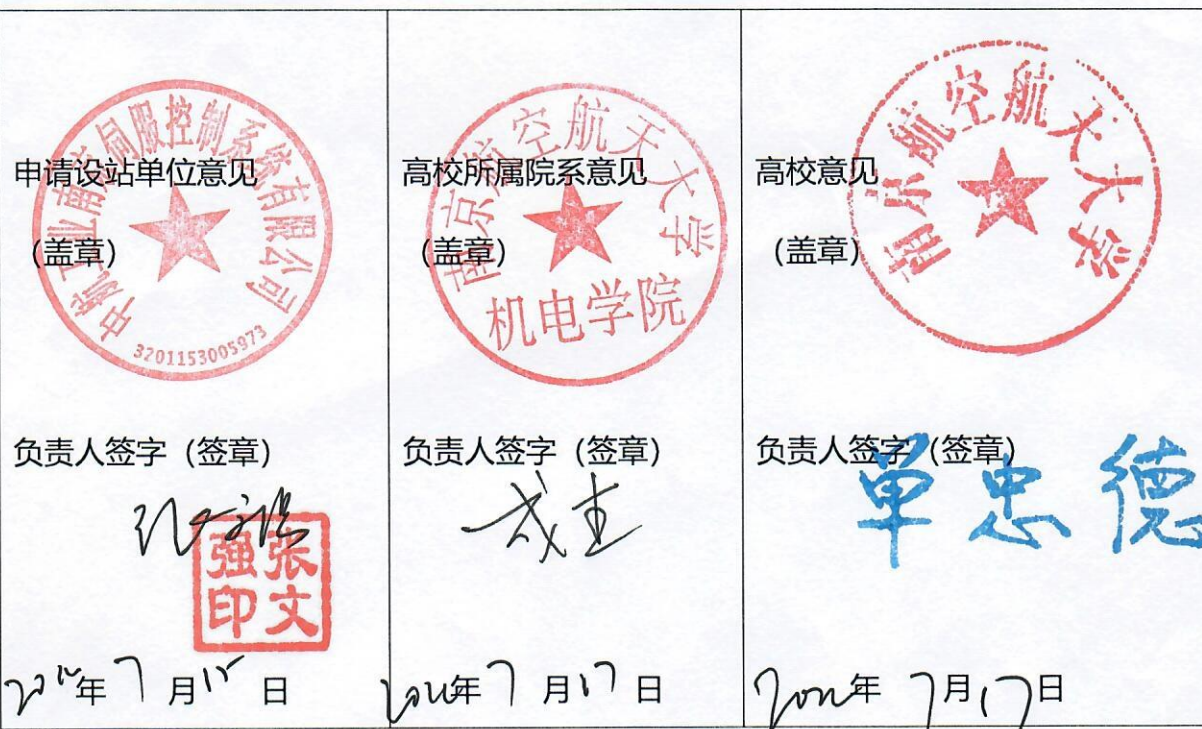 申请设站单位意见
(盖章)
中航工业南京伺服控制系统有限公司
3201153005973
负责人签字 (签章)
张文强
张文强印
2022年 7 月 15 日
高校所属院系意见
(盖章)
南京航空航天大学
机电学院
负责人签字 (签章)
2022年 7 月 17 日
高校意见
(盖章)
南京航空航天大学
负责人签字 (签章)
单忠德
2022年 7月17日